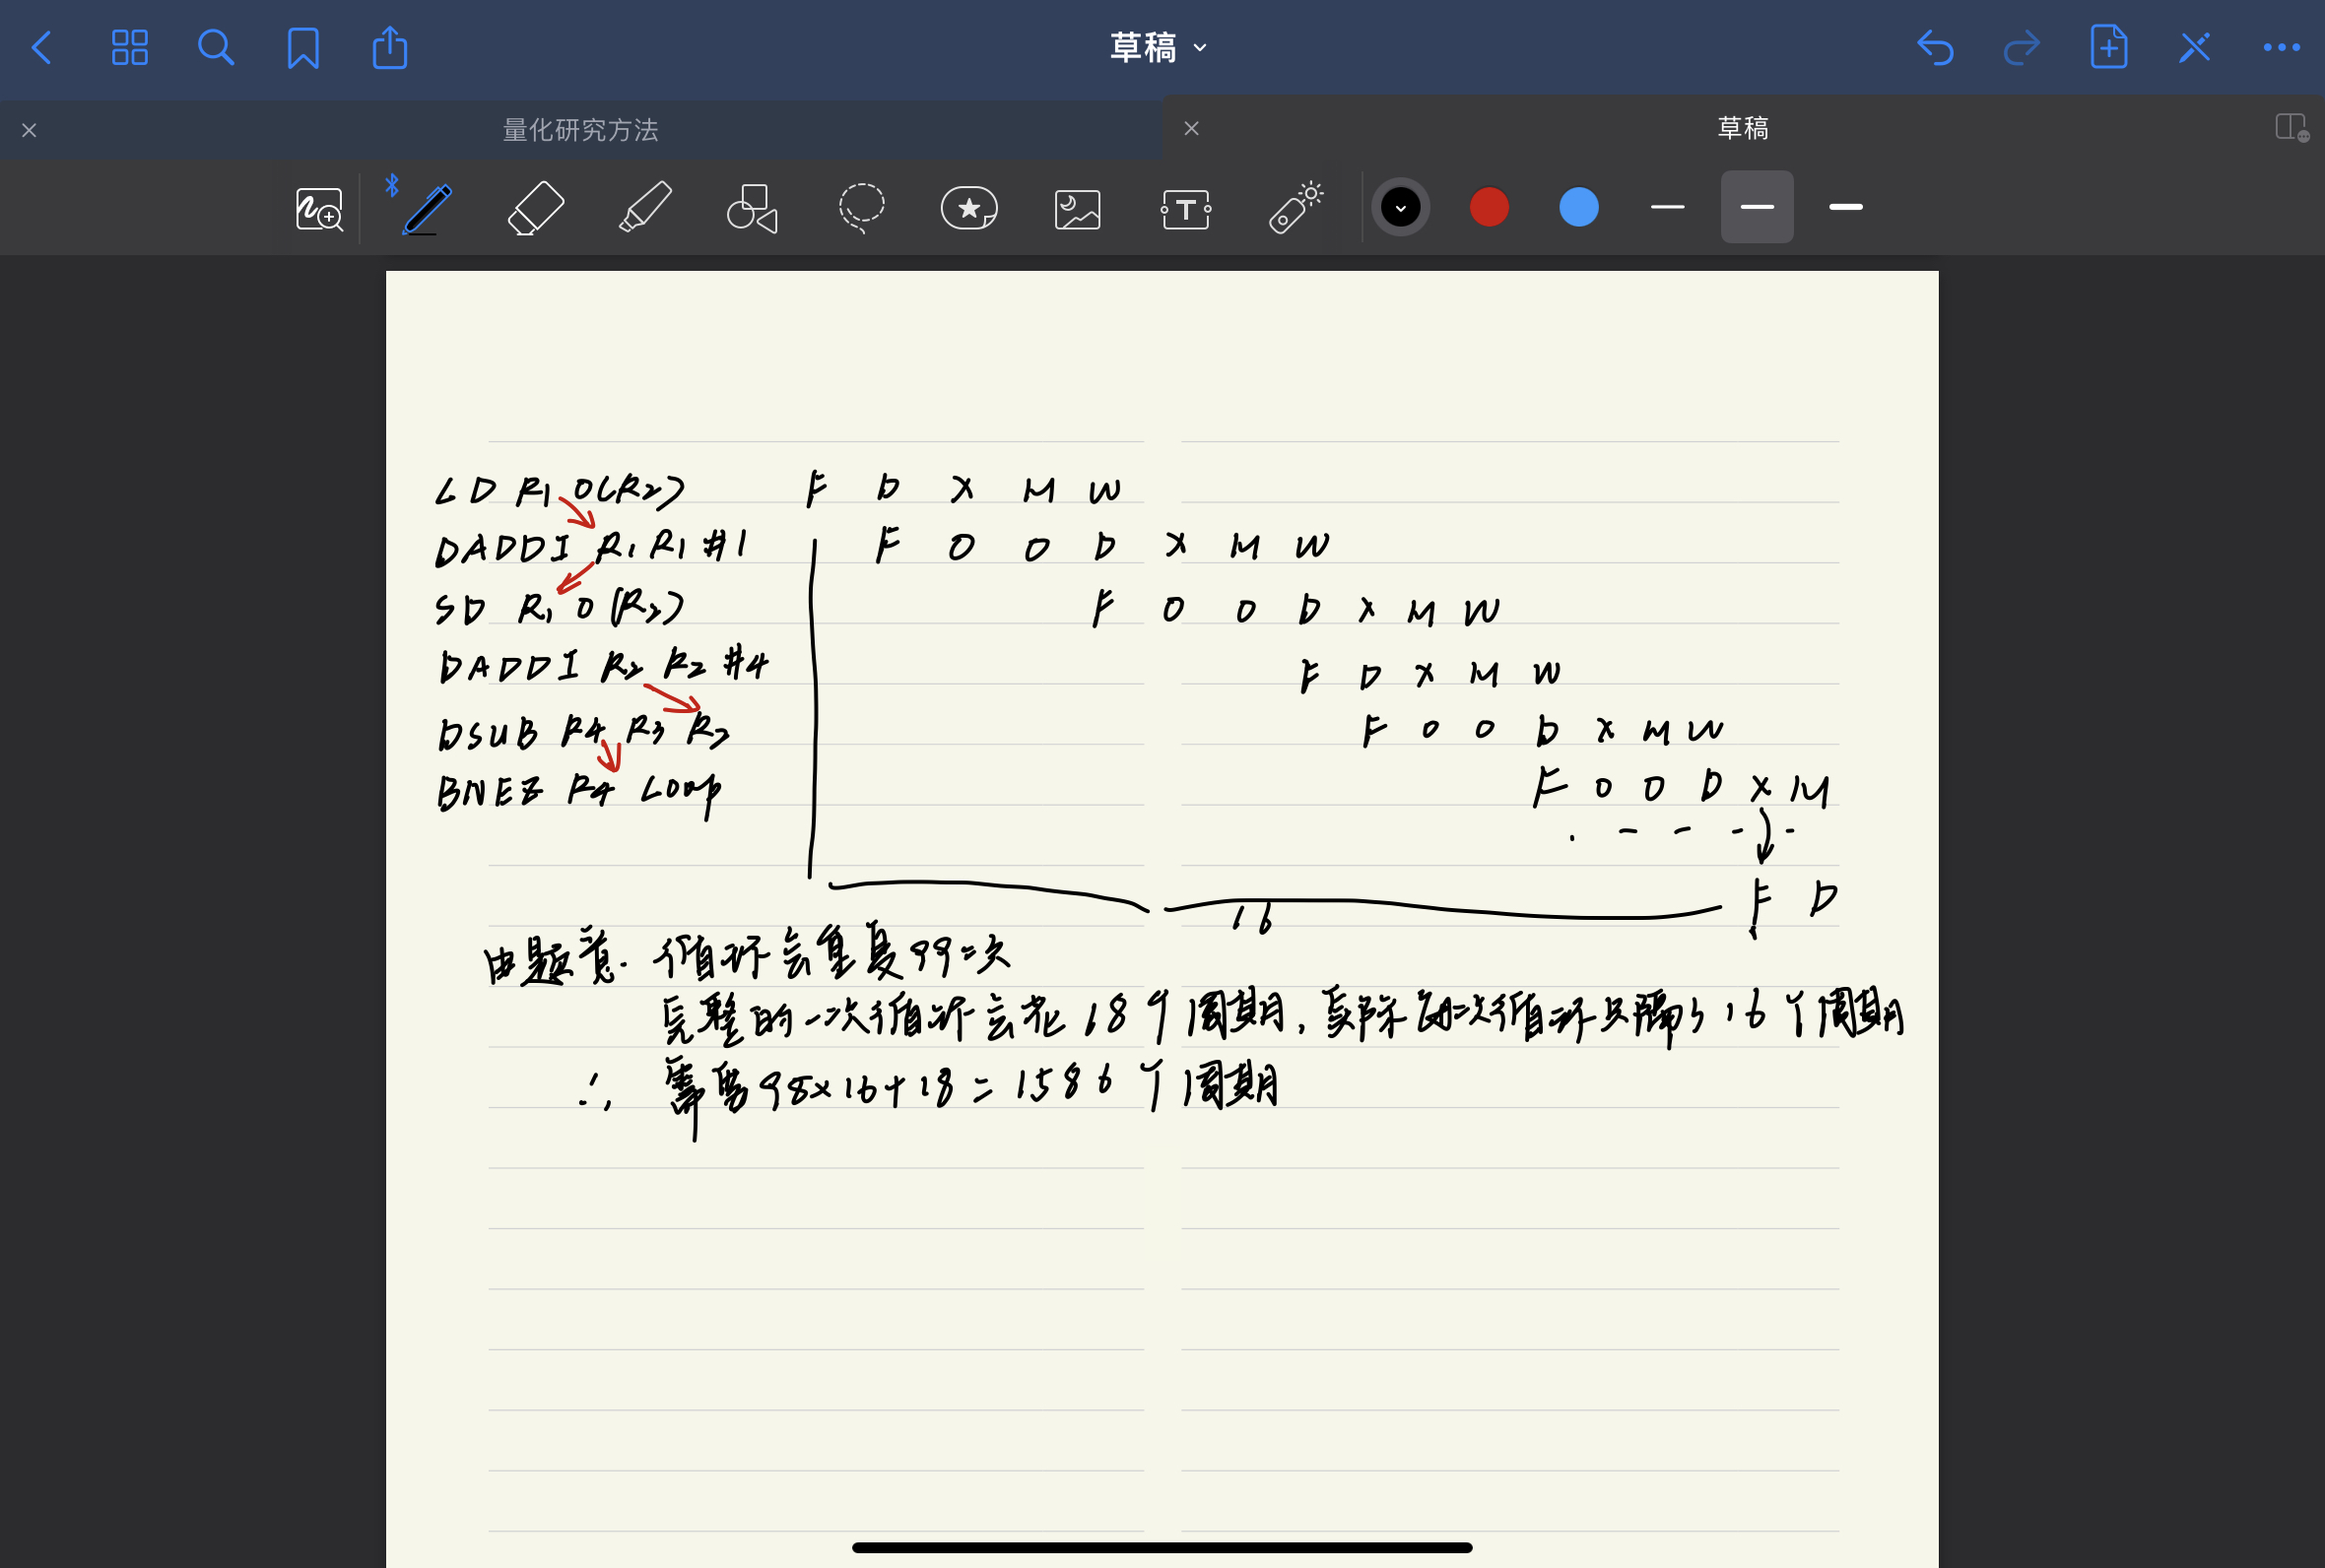 草稿
量化研究方法
草稿
T
LD R1 0(R2) F D X M W
DADDI R1 R1 #1 F 0 0 D X M W
SD R1 0(R2) F 0 0 D X M W
DADDI R2 R2 #4 F D X M W
DSUB R4 R3 R2 F 0 0 D X M W
BNEZ R4 Loop F 0 0 D X M
F D
16
由题意. 循环会重复99次
完整的一次循环会花18个周期, 实际每次循环只隔了16个周期
∴ 需要98×16+18=1586个周期